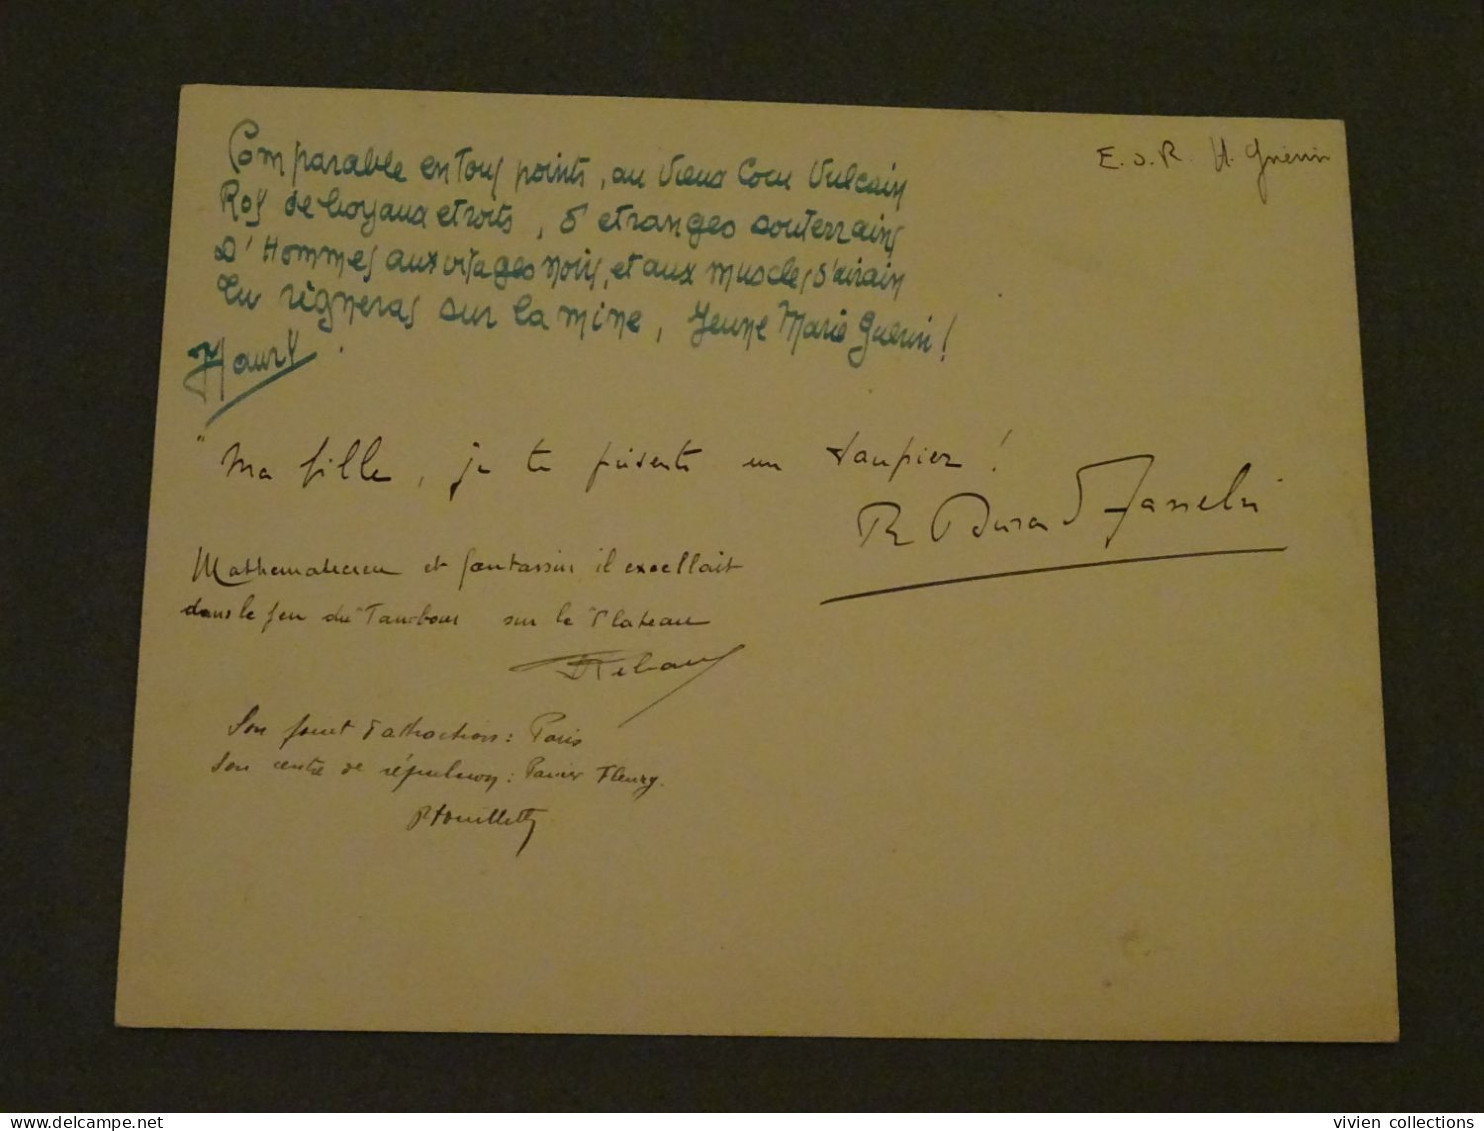 E.O.R. H. Guérin
Comparable en Tous points, au Vieux Cocu Vulcain
Roy de boyaux etroits, d'etranges souterrains
D'Hommes aux visages noirs, et aux muscles d'airain
Tu règneras sur la mine, Jeune Marie Guerin!
"Ma fille, je te présente un taupier!
Mathematicien et fantassin il excellait
dans le jeu du Tambour sur le Plateau
Son point d'attraction: Paris
Son centre de répulsion: Panier Fleury.
vivien collections